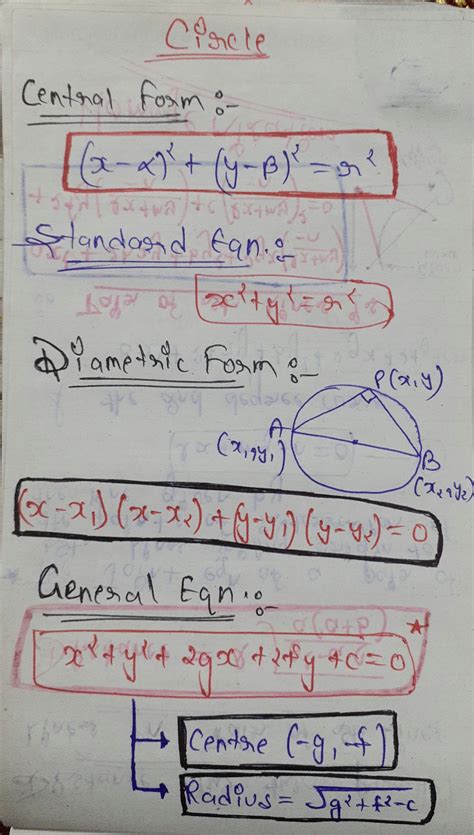 Circle
Central Form :-
(x-α)² + (y-β)² = r²
Standard Eqn. :-
x² + y² = r²
Diametric Form :-
P(x,y)
A
(x₁,y₁)
B
(x₂,y₂)
(x-x₁) (x-x₂) + (y-y₁) (y-y₂) = 0
General Eqn. :-
x² + y² + 2gx + 2fy + c = 0
Centre (-g, -f)
Radius = √g²+f²-c